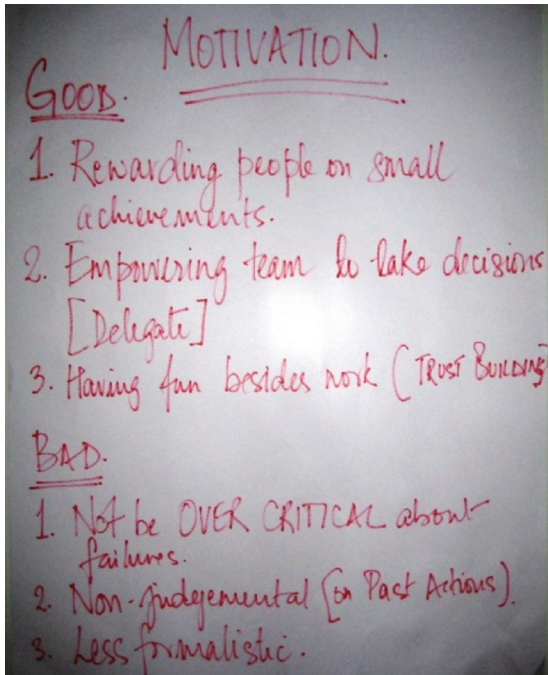 MOTIVATION.
GOOD.
1. Rewarding people on small
achievements.
2. Empowering team to take decisions
[Delegate]
3. Having fun besides work (TRUST BUILDING)
BAD.
1. Not be OVER CRITICAL about
failures.
2. Non-judgemental (on Past Actions).
3. Less formalistic.